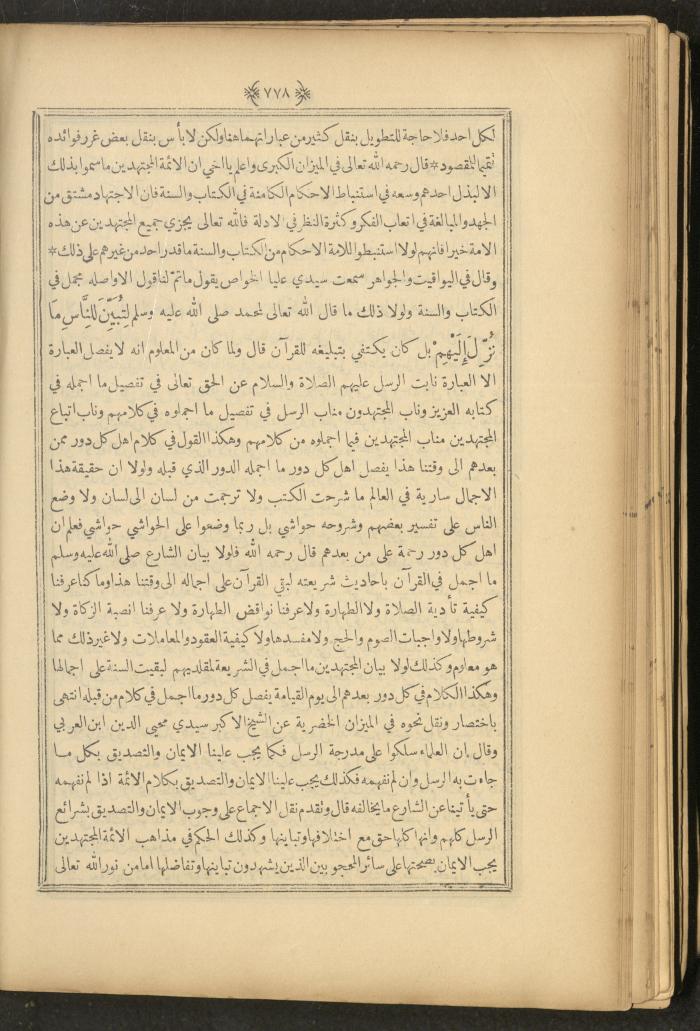 ٧٧٨
لكل احد فلا حاجة للتطويل بنقل كثير من عباراتهما هنا ولكن لا بأس بنقل بعض غرر فوائده
تتميما للمقصود * قال رحمه الله تعالى في الميزان الكبرى واعلم يا اخي ان الائمة المجتهدين ما سموا بذلك
الا لبذل احدهم وسعه في استنباط الاحكام الكامنة في الكتاب والسنة فان الاجتهاد مشتق من
الجهد والمبالغة في اتعاب الفكر وكثرة النظر في الادلة فالله تعالى يجزي جميع المجتهدين عن هذه
الامة خيرا فانهم لولا استنبطوا للامة الاحكام من الكتاب والسنة ما قدر احد من غيرهم على ذلك *
وقال في اليواقيت والجواهر سمعت سيدي عليا الخواص يقول ما تم لنا قول الا واصله مجمل في
الكتاب والسنة ولولا ذلك ما قال الله تعالى لمحمد صلى الله عليه وسلم لِتُبَيِّنَ لِلنَّاسِ مَا
نُزِّلَ إِلَيْهِمْ بل كان يكتفي بتبليغه للقرآن قال ولما كان من المعلوم انه لا يفصل العبارة
الا العبارة نابت الرسل عليهم الصلاة والسلام عن الحق تعالى في تفصيل ما اجمله في
كتابه العزيز وناب المجتهدون مناب الرسل في تفصيل ما اجملوه في كلامهم وناب اتباع
المجتهدين مناب المجتهدين فيما اجملوه من كلامهم وهكذا القول في كلام اهل كل دور ممن
بعدهم الى وقتنا هذا يفصل اهل كل دور ما اجمله الدور الذي قبله ولولا ان حقيقة هذا
الاجمال سارية في العالم ما شرحت الكتب ولا ترجمت من لسان الى لسان ولا وضع
الناس على تفسير بعضهم وشروحه حواشي بل ربما وضعوا على الحواشي حواشي فعلم ان
اهل كل دور رحمة على من بعدهم قال رحمه الله فلولا بيان الشارع صلى الله عليه وسلم
ما اجمل في القرآن باحاديث شريعته لبقي القرآن على اجماله الى وقتنا هذا وما كنا عرفنا
كيفية تأدية الصلاة ولا الطهارة ولا عرفنا نواقض الطهارة ولا عرفنا انصبة الزكاة ولا
شروطها ولا واجبات الصوم والحج ولا مفسدها ولا كيفية العقود والمعاملات ولا غير ذلك مما
هو معلوم وكذلك لولا بيان المجتهدين ما اجمل في الشريعة لمقلديهم لبقيت السنة على اجمالها
وهكذا الكلام في كل دور بعدهم الى يوم القيامة يفصل كل دور ما اجمل في كلام من قبله انتهى
باختصار ونقل نحوه في الميزان الخضرية عن الشيخ الاكبر سيدي محيي الدين ابن العربي
وقال ان العلماء سلكوا على مدرجة الرسل فكما يجب علينا الايمان والتصديق بكل ما
جاءت به الرسل وان لم نفهمه فكذلك يجب علينا الايمان والتصديق بكلام الائمة اذا لم نفهمه
حتى يأتينا عن الشارع ما يخالفه قال وتقدم نقل الاجماع على وجوب الايمان والتصديق بشرائع
الرسل كلهم وانها كلها حق مع اختلافها وتباينها وكذلك الحكم في مذاهب الائمة المجتهدين
يجب الايمان بصحتها على سائر المحجوبين الذين يشهدون تباينها وتفاضلها اما من نور الله تعالى